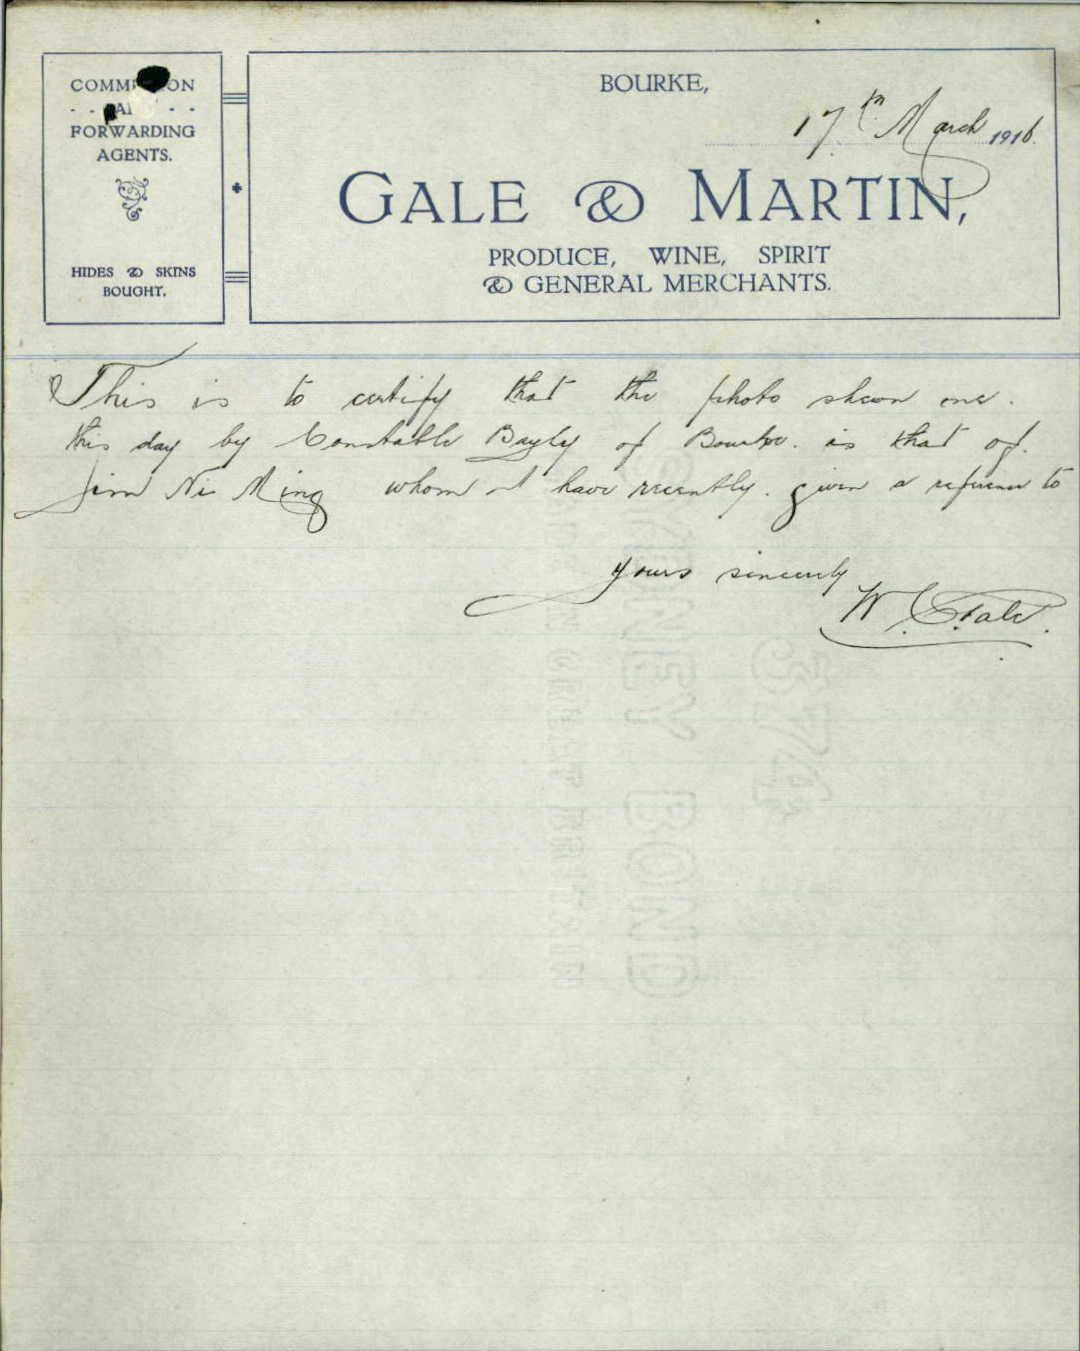 COMMISSION
- - AND - -
FORWARDING
AGENTS.
HIDES & SKINS
BOUGHT.
BOURKE,
17th March 1916.
GALE & MARTIN,
PRODUCE, WINE, SPIRIT
& GENERAL MERCHANTS.
This is to certify that the photo shewn me.
this day by Constable Bayly of Bourke. is that of.
Jim Ni Ming whom I have recently. given a reference to
Yours sincerely
W. G. Gale.
SYDNEY BOND
374
GREAT BRITAIN